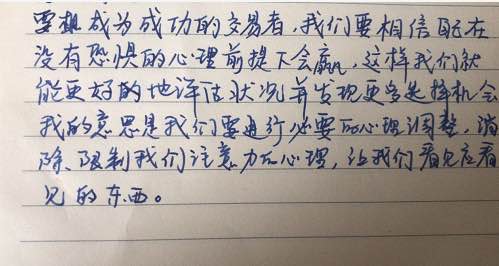 要想成为成功的交易者，我们要相信自己在
没有恐惧的心理前提下会赢，这样我们就
能更好的地评估状况并发现更多选择机会
我的意思是我们要进行必要的心理调整，消
除、限制我们注意力的心理，让我们看见应看
见的东西。